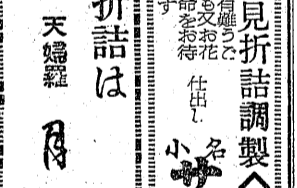 見折詰調製
有難うご
も又お花
命をお待
す
仕出し
名
小
折詰は
天婦羅
月